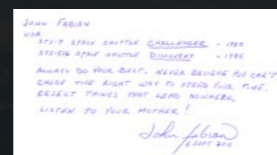 JOHN FABIAN
USA
STS-7 SPACE SHUTTLE CHALLENGER - 1983
STS-51G SPACE SHUTTLE DISCOVERY - 1985
ALWAYS DO YOUR BEST. NEVER BELIEVE YOU CAN'T
CHOSE THE RIGHT WAY TO SPEND YOUR TIME.
REJECT THINGS THAT LEAD NOWHERE.
LISTEN TO YOUR MOTHER!
John Fabian